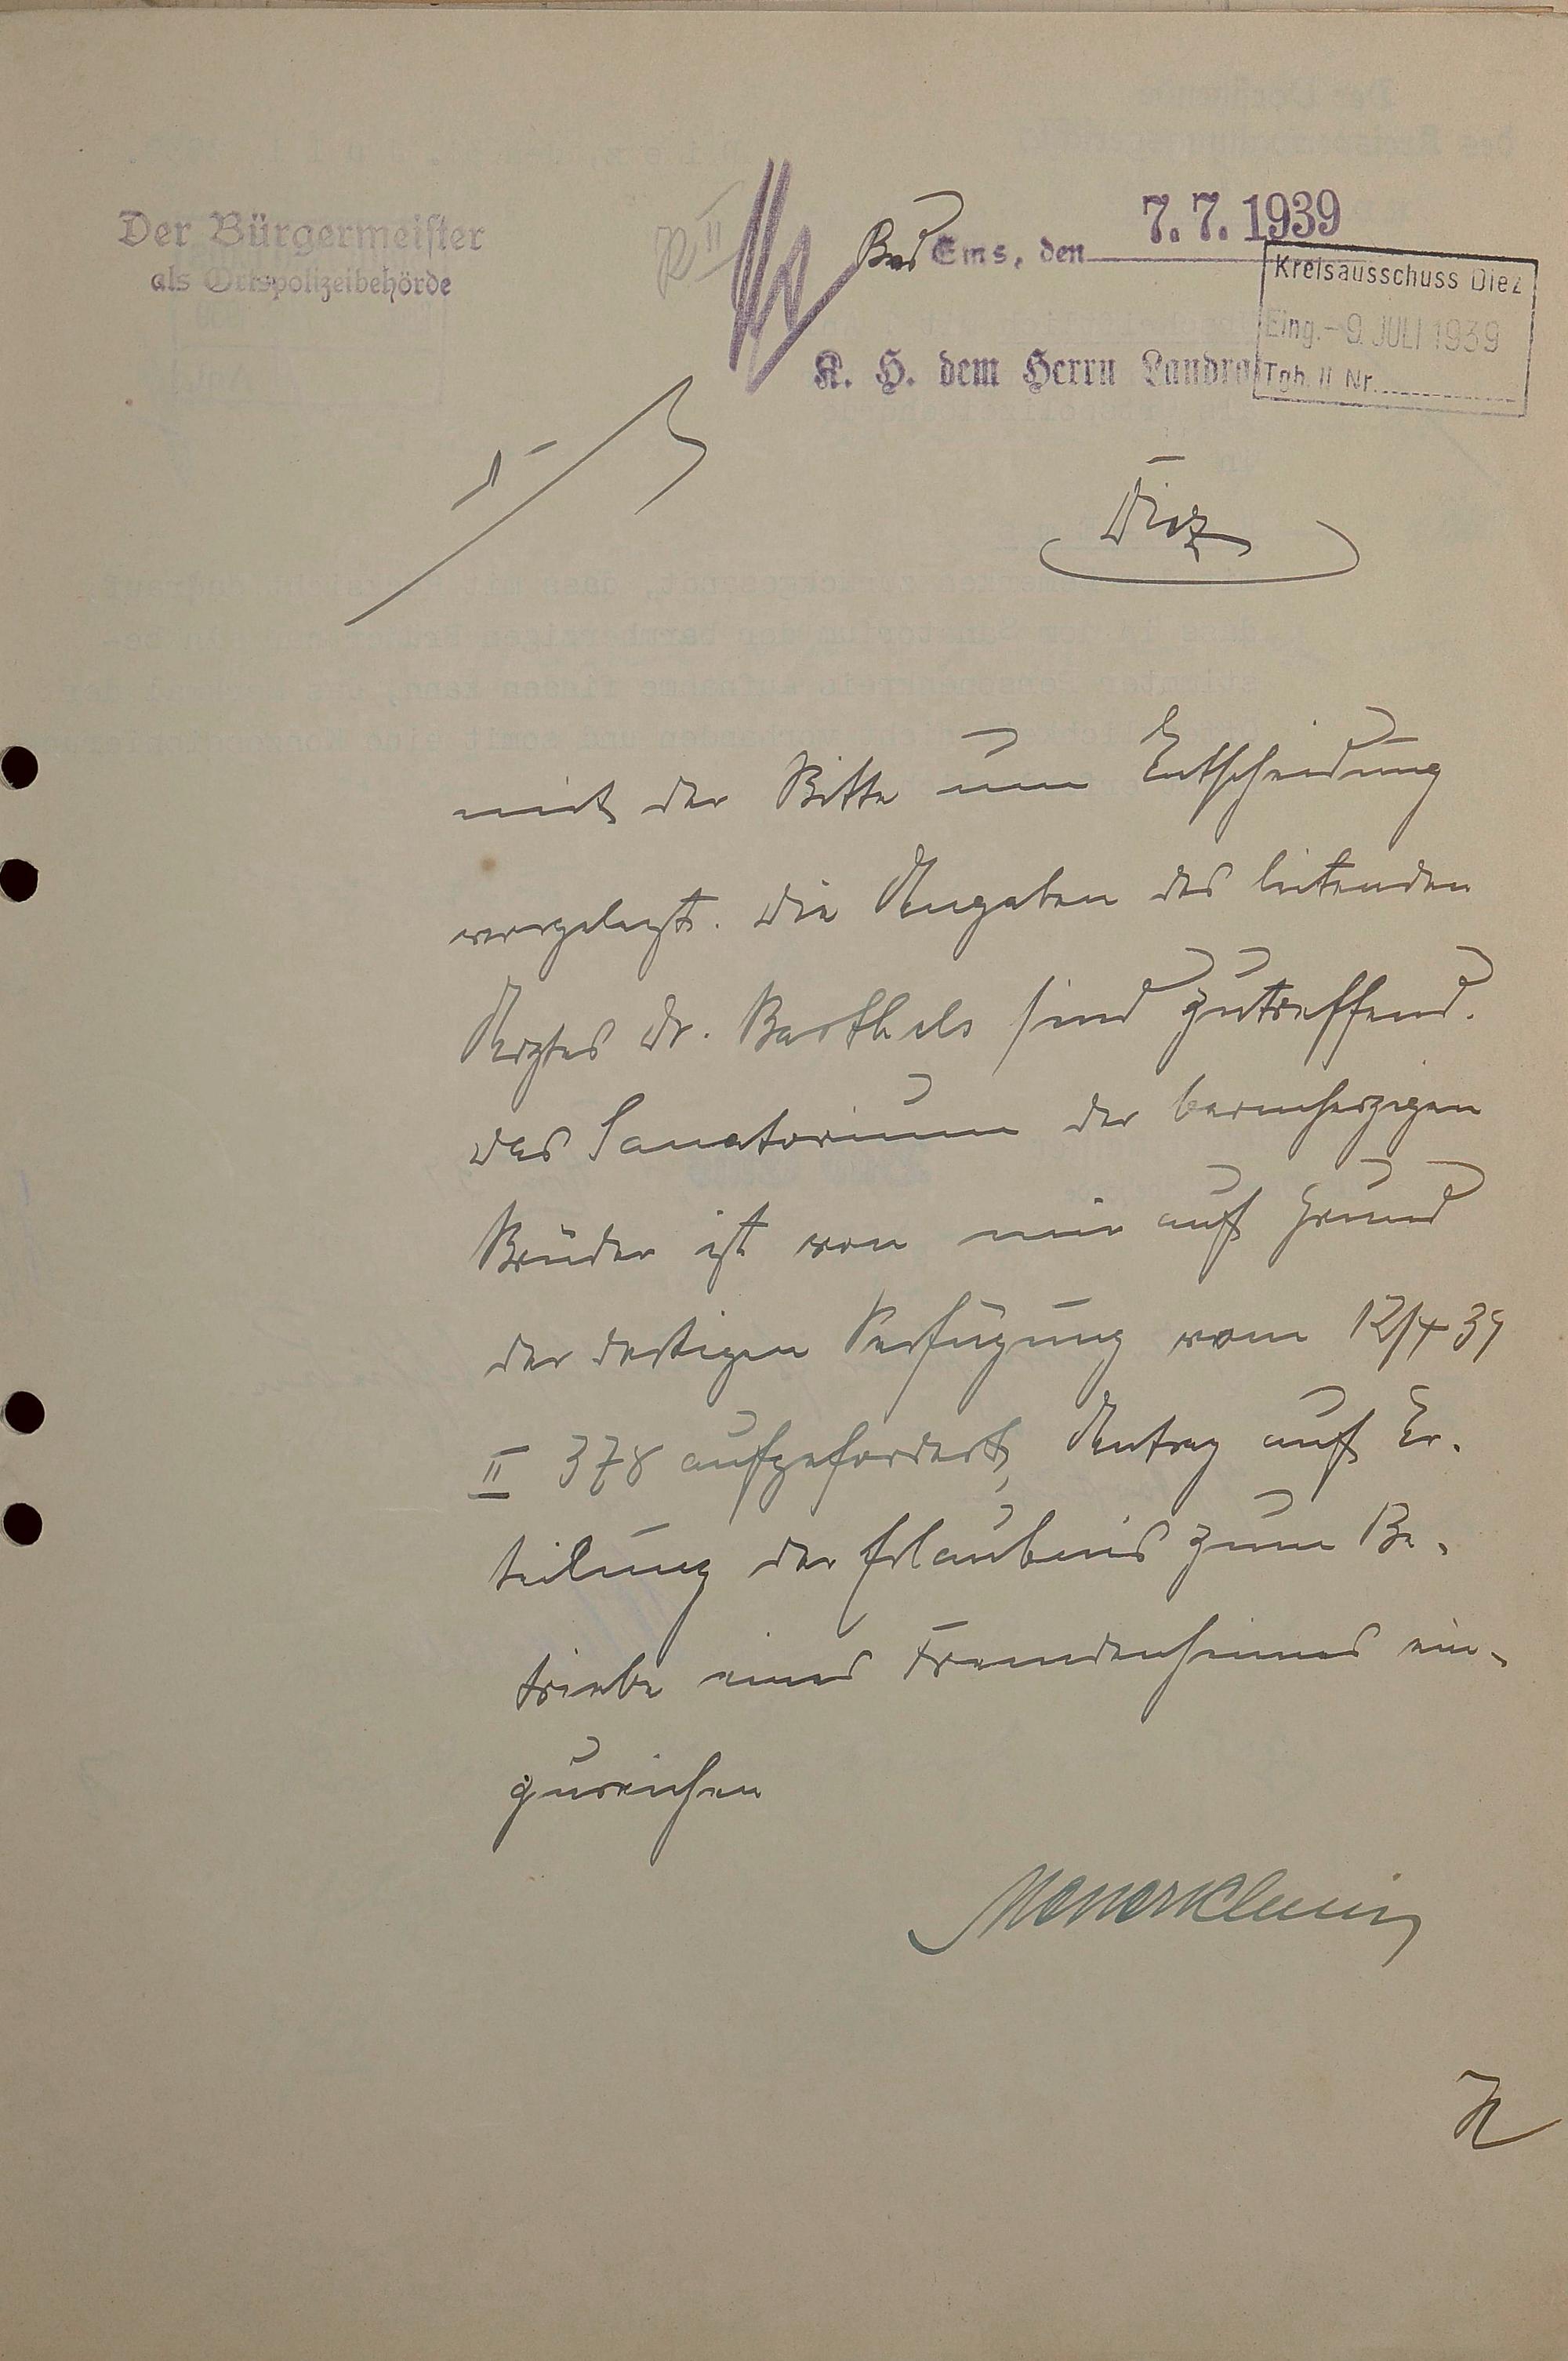 Der Bürgermeister
als Ortspolizeibehörde
Bad Ems, den 7.7.1939
Kreisausschuss Diez
Eing. - 9. JULI 1939
Tgb. II Nr.
K. H. dem Herrn Landra
Diez
mit der Bitte um Entscheidung
vorgelegt. Die Angaben des leitenden
Arztes Dr. Barthels sind zutreffend.
Das Sanatorium der barmherzigen
Brüder ist von mir auf Grund
der dortigen Verfügung vom 12/4 39
II 378 aufgefordert, Antrag auf Er-
teilung der Erlaubnis zum Be-
triebe eines Fremdenheimes ein-
zureichen